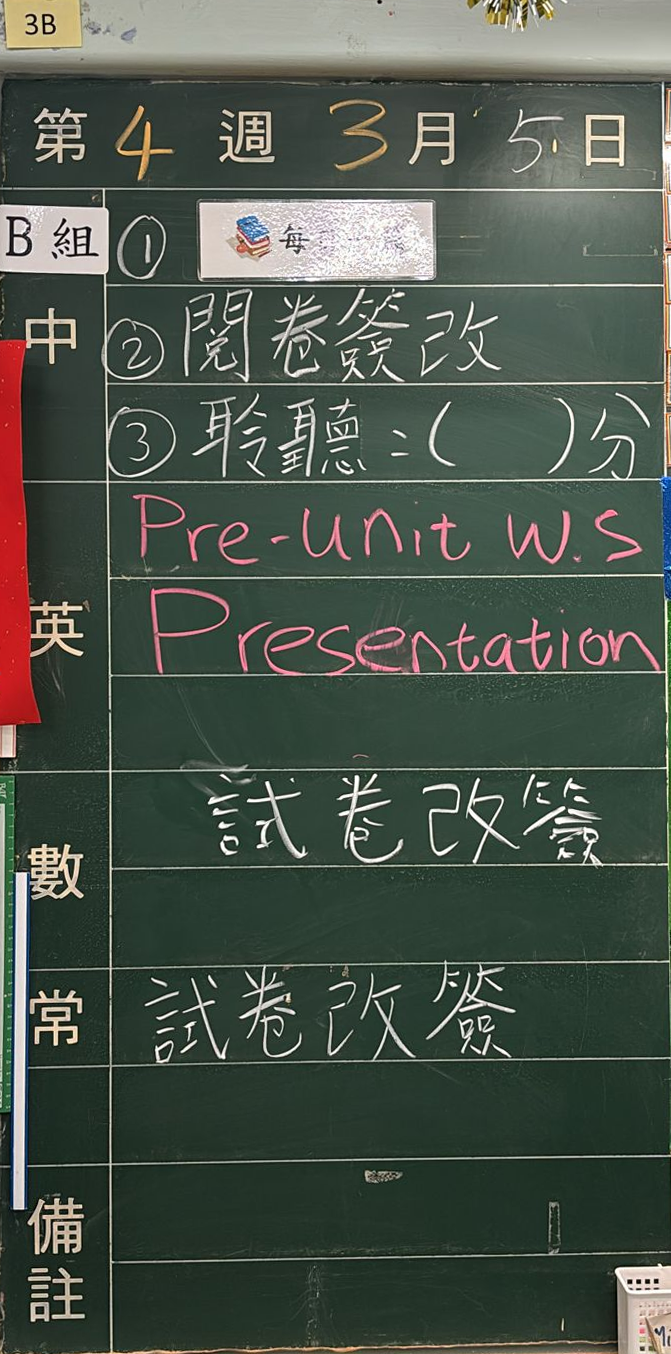 3B
第 4 週 3 月 5 日
B組
① 每
中
② 閱卷簽改
③ 聆聽:( )分
Pre-unit W.S
英
Presentation
試卷改簽
數
常
試卷改簽
備註